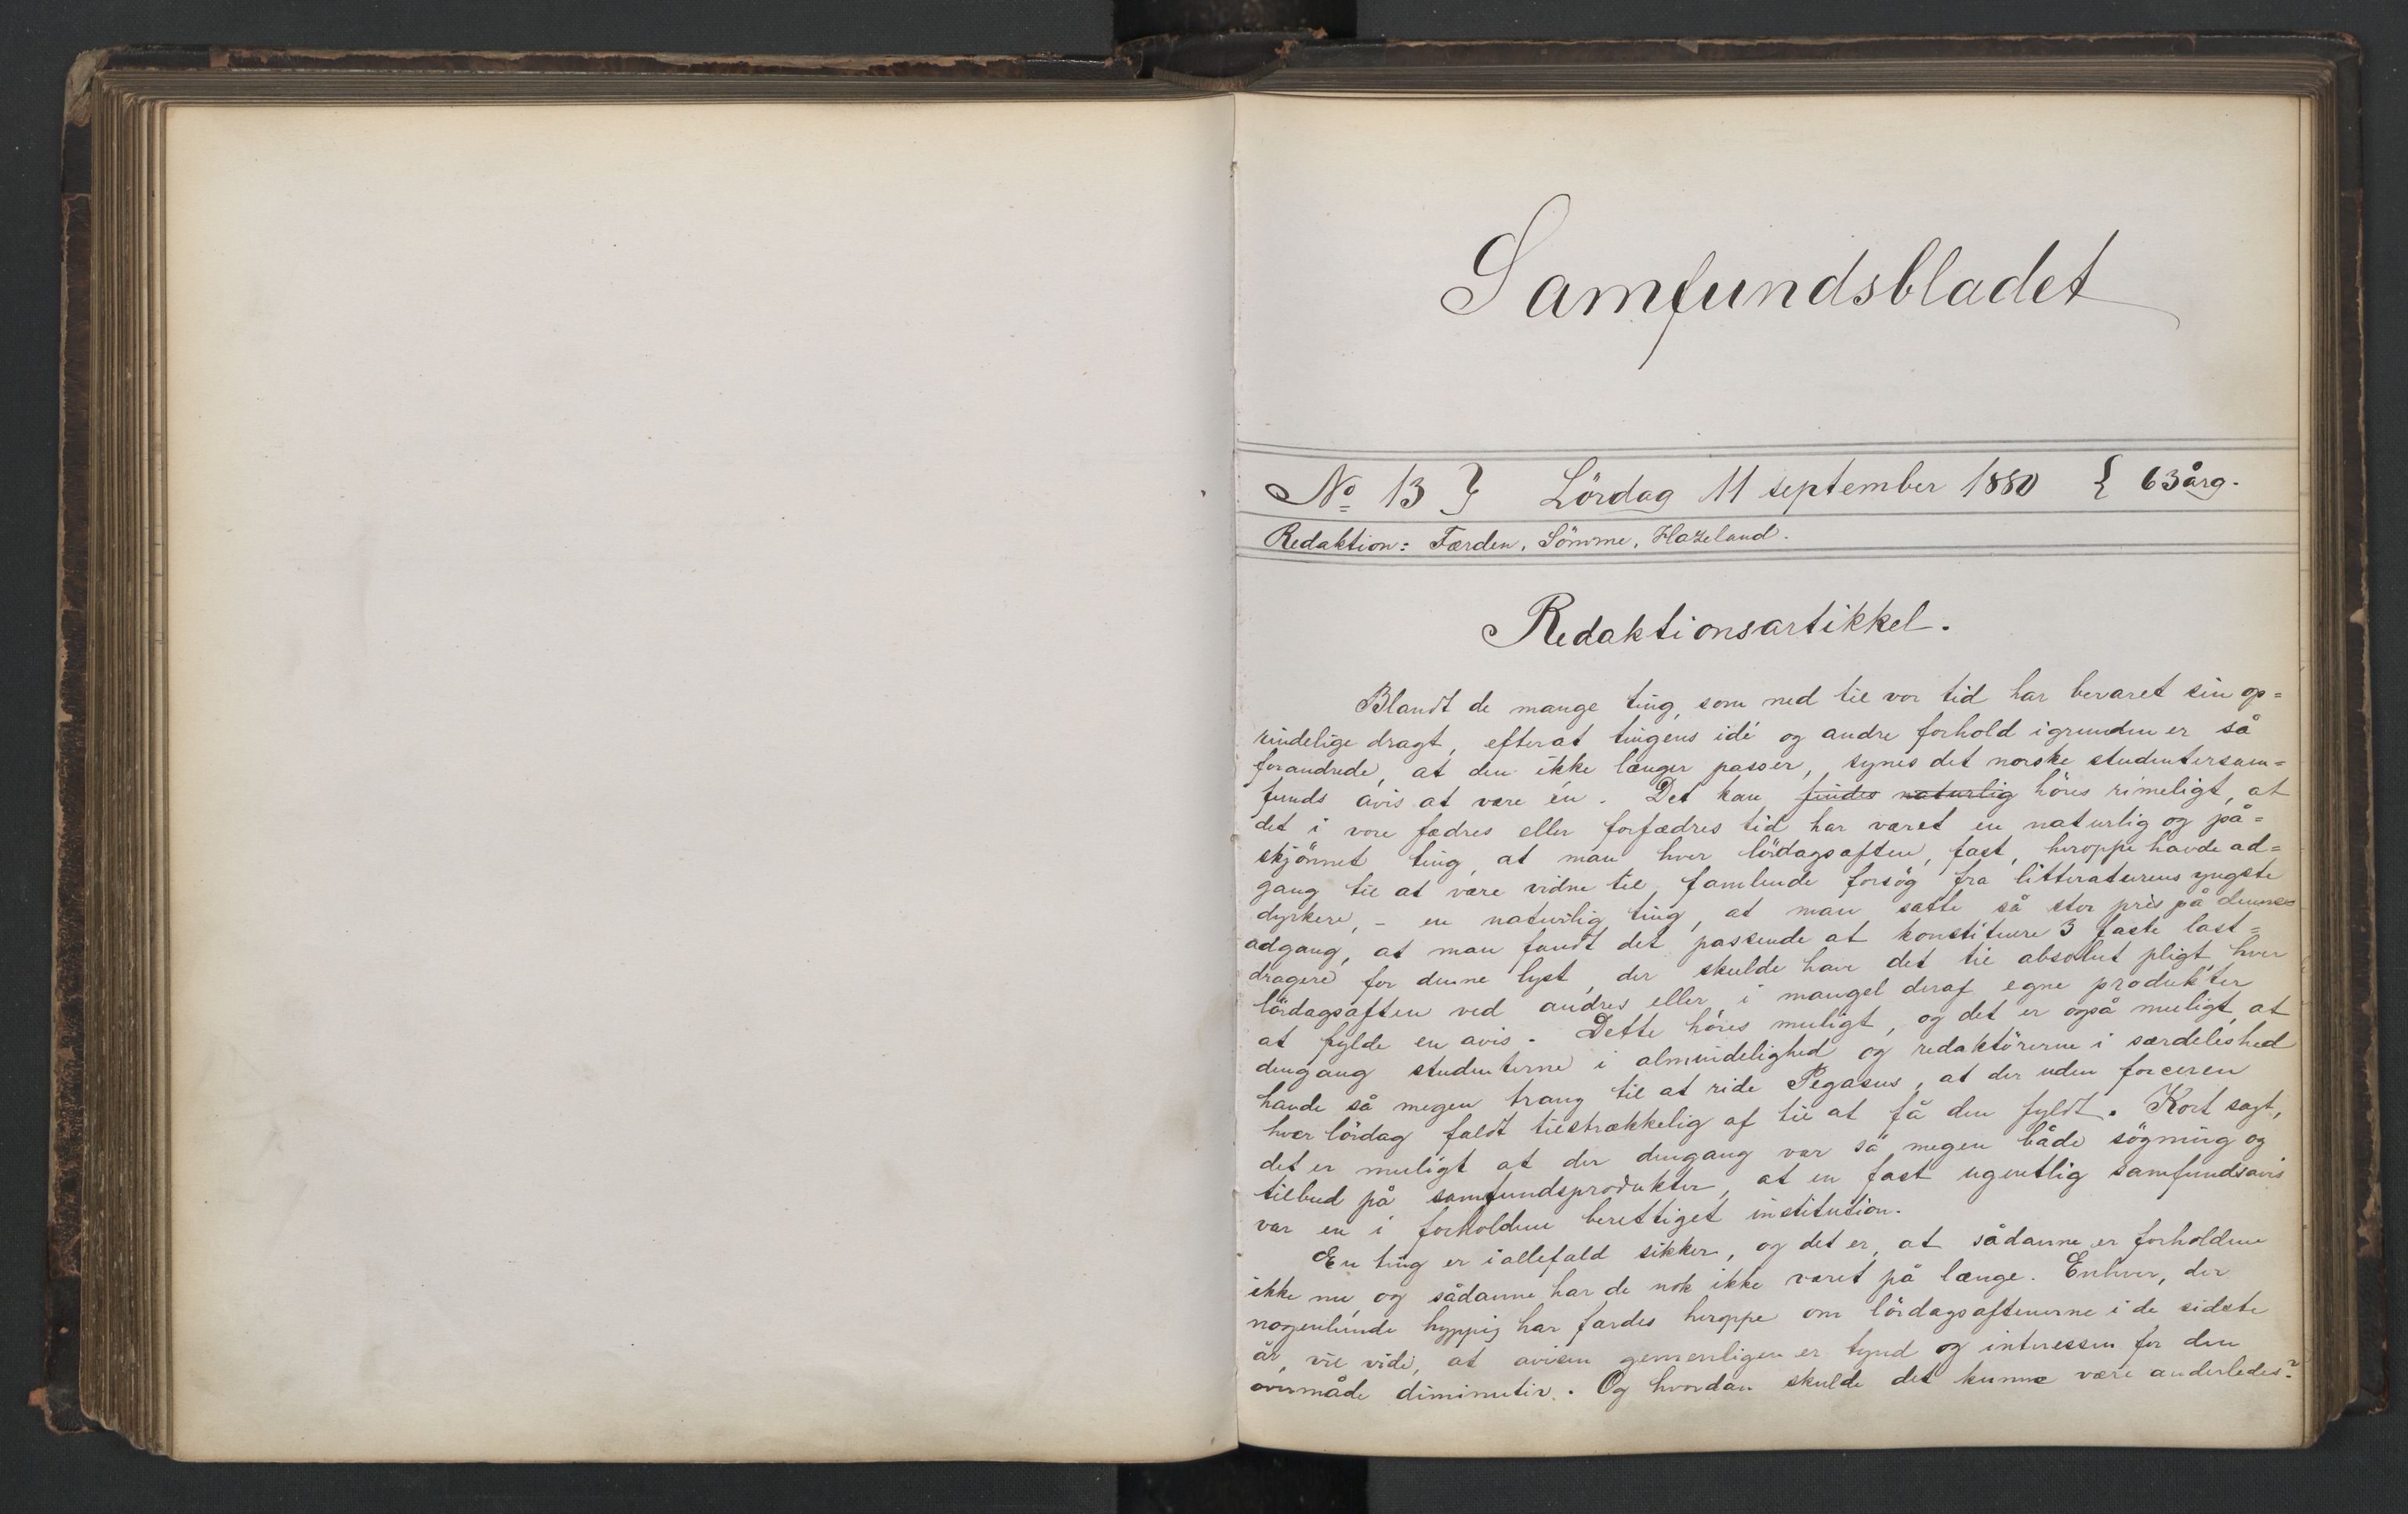 Samfundsbladet
No 13 } Lördag 11 september 1880 { 63 årg.
Redaktion: Færden, Sömme, Hazeland.
Redaktionsartikkel.
Blandt de mange ting, som ned til vor tid har bevaret sin op=
rindelige dragt, efterat tingens idé og andre forhold igrunden er så
forandrede, at den ikke længer passer, synes det norske studentersam=
funds avis at være én. Det kan findes naturlig höres rimeligt, at
det i vore fædres eller forfædres tid har været en naturlig og på=
skjönnet ting, at man hver lördagsaften, fast, heroppe havde ad=
gang til at være vidne til famlende forsög fra litteraturens yngste
dyrkere, - en naturlig ting, at man satte så stor pris på dennes
adgang, at man fandt det passende at konstituere 3 faste last=
dragere for denne lyst, der skulde have det til absolut pligt, hver
lördagsaften ved andres eller i mangel deraf egne produkter
at fylde en avis. Dette höres muligt, og det er også muligt, at
dengang studenterne i almindelighed og redaktörerne i særdeleshed
havde så megen trang til at ride Pegasus, at der uden forceren
hver lördag faldt tilstrækkelig af til at få den fyldt. Kort sagt,
det er muligt at der dengang var så megen både sögning og
tilbud på samfundsprodukter, at en fast ugentlig samfundsavis
var en i forholdene berettiget institution.
En ting er iallefald sikker, og det er, at sådanne er forholdene
ikke nu, og sådanne har de nok ikke været på længe. Enhver, der
nogenlunde hyppig har færdes heroppe om lördagsaftenerne i de sidste
år, vil vide, at avisen gemenligen er tynd og interessen for den
overmåde diminutiv. Og hvordan skulde det kunne være anderledes?